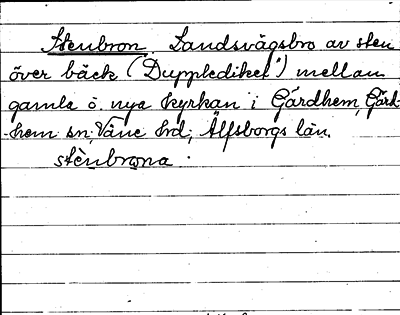 Stenbron. Landsvägsbro av sten
över bäck ("Dupplediket") mellan
gamla o. nya kyrkan i Gärdhem, Gärd-
hem sn, Väne hd, Älfsborgs län.
stènbrona.